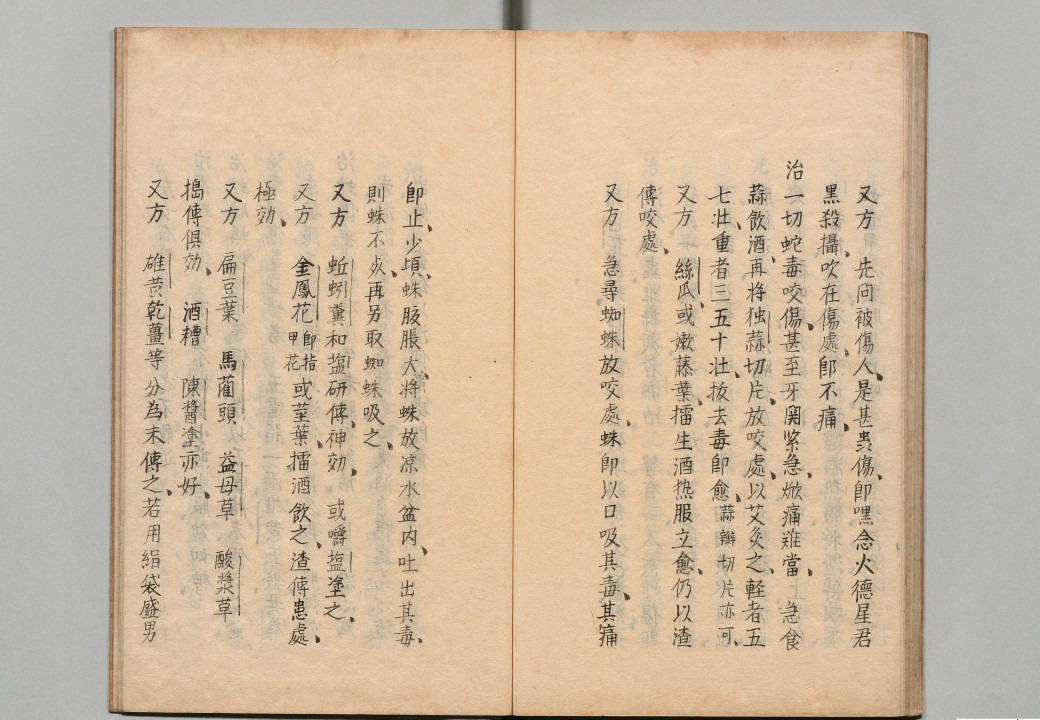 又方 先问被傷人、是甚虫傷、即嘿念火德星君
黑殺攝、吹在傷處、即不痛、
治一切蛇毒咬傷、甚至牙関紧急、焮痛难當、 急食
蒜飲酒、再将独蒜切片、放咬處、以艾灸之、軽者五
七壮、重者三五十壮、拔去毒即愈、蒜瓣切片亦可、
又方 絲瓜、或嫩藤葉、擂生酒热服立愈、仍以渣
傅咬處、
又方 急尋蜘蛛放咬處、蛛即以口吸其毒、其痛
即止、少頃蛛腹脹大、将蛛放凉水盆内、吐出其毒、
則蛛不死、再另取蜘蛛吸之、
又方 蚯蚓糞和塩研傅、神効、 或嚼塩塗之、
又方 金鳳花即指甲花或茎葉、擂酒飲之、渣傅患處、
極効、
又方 扁豆葉 馬藺頭 益母草 酸漿草
搗傅俱効、 酒糟 陳醬塗亦好、
又方 雄黄乾薑等分為末、傅之、若用絹袋盛男